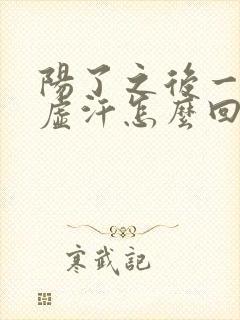 陽了之後一
虛汗怎麼回
寒武記